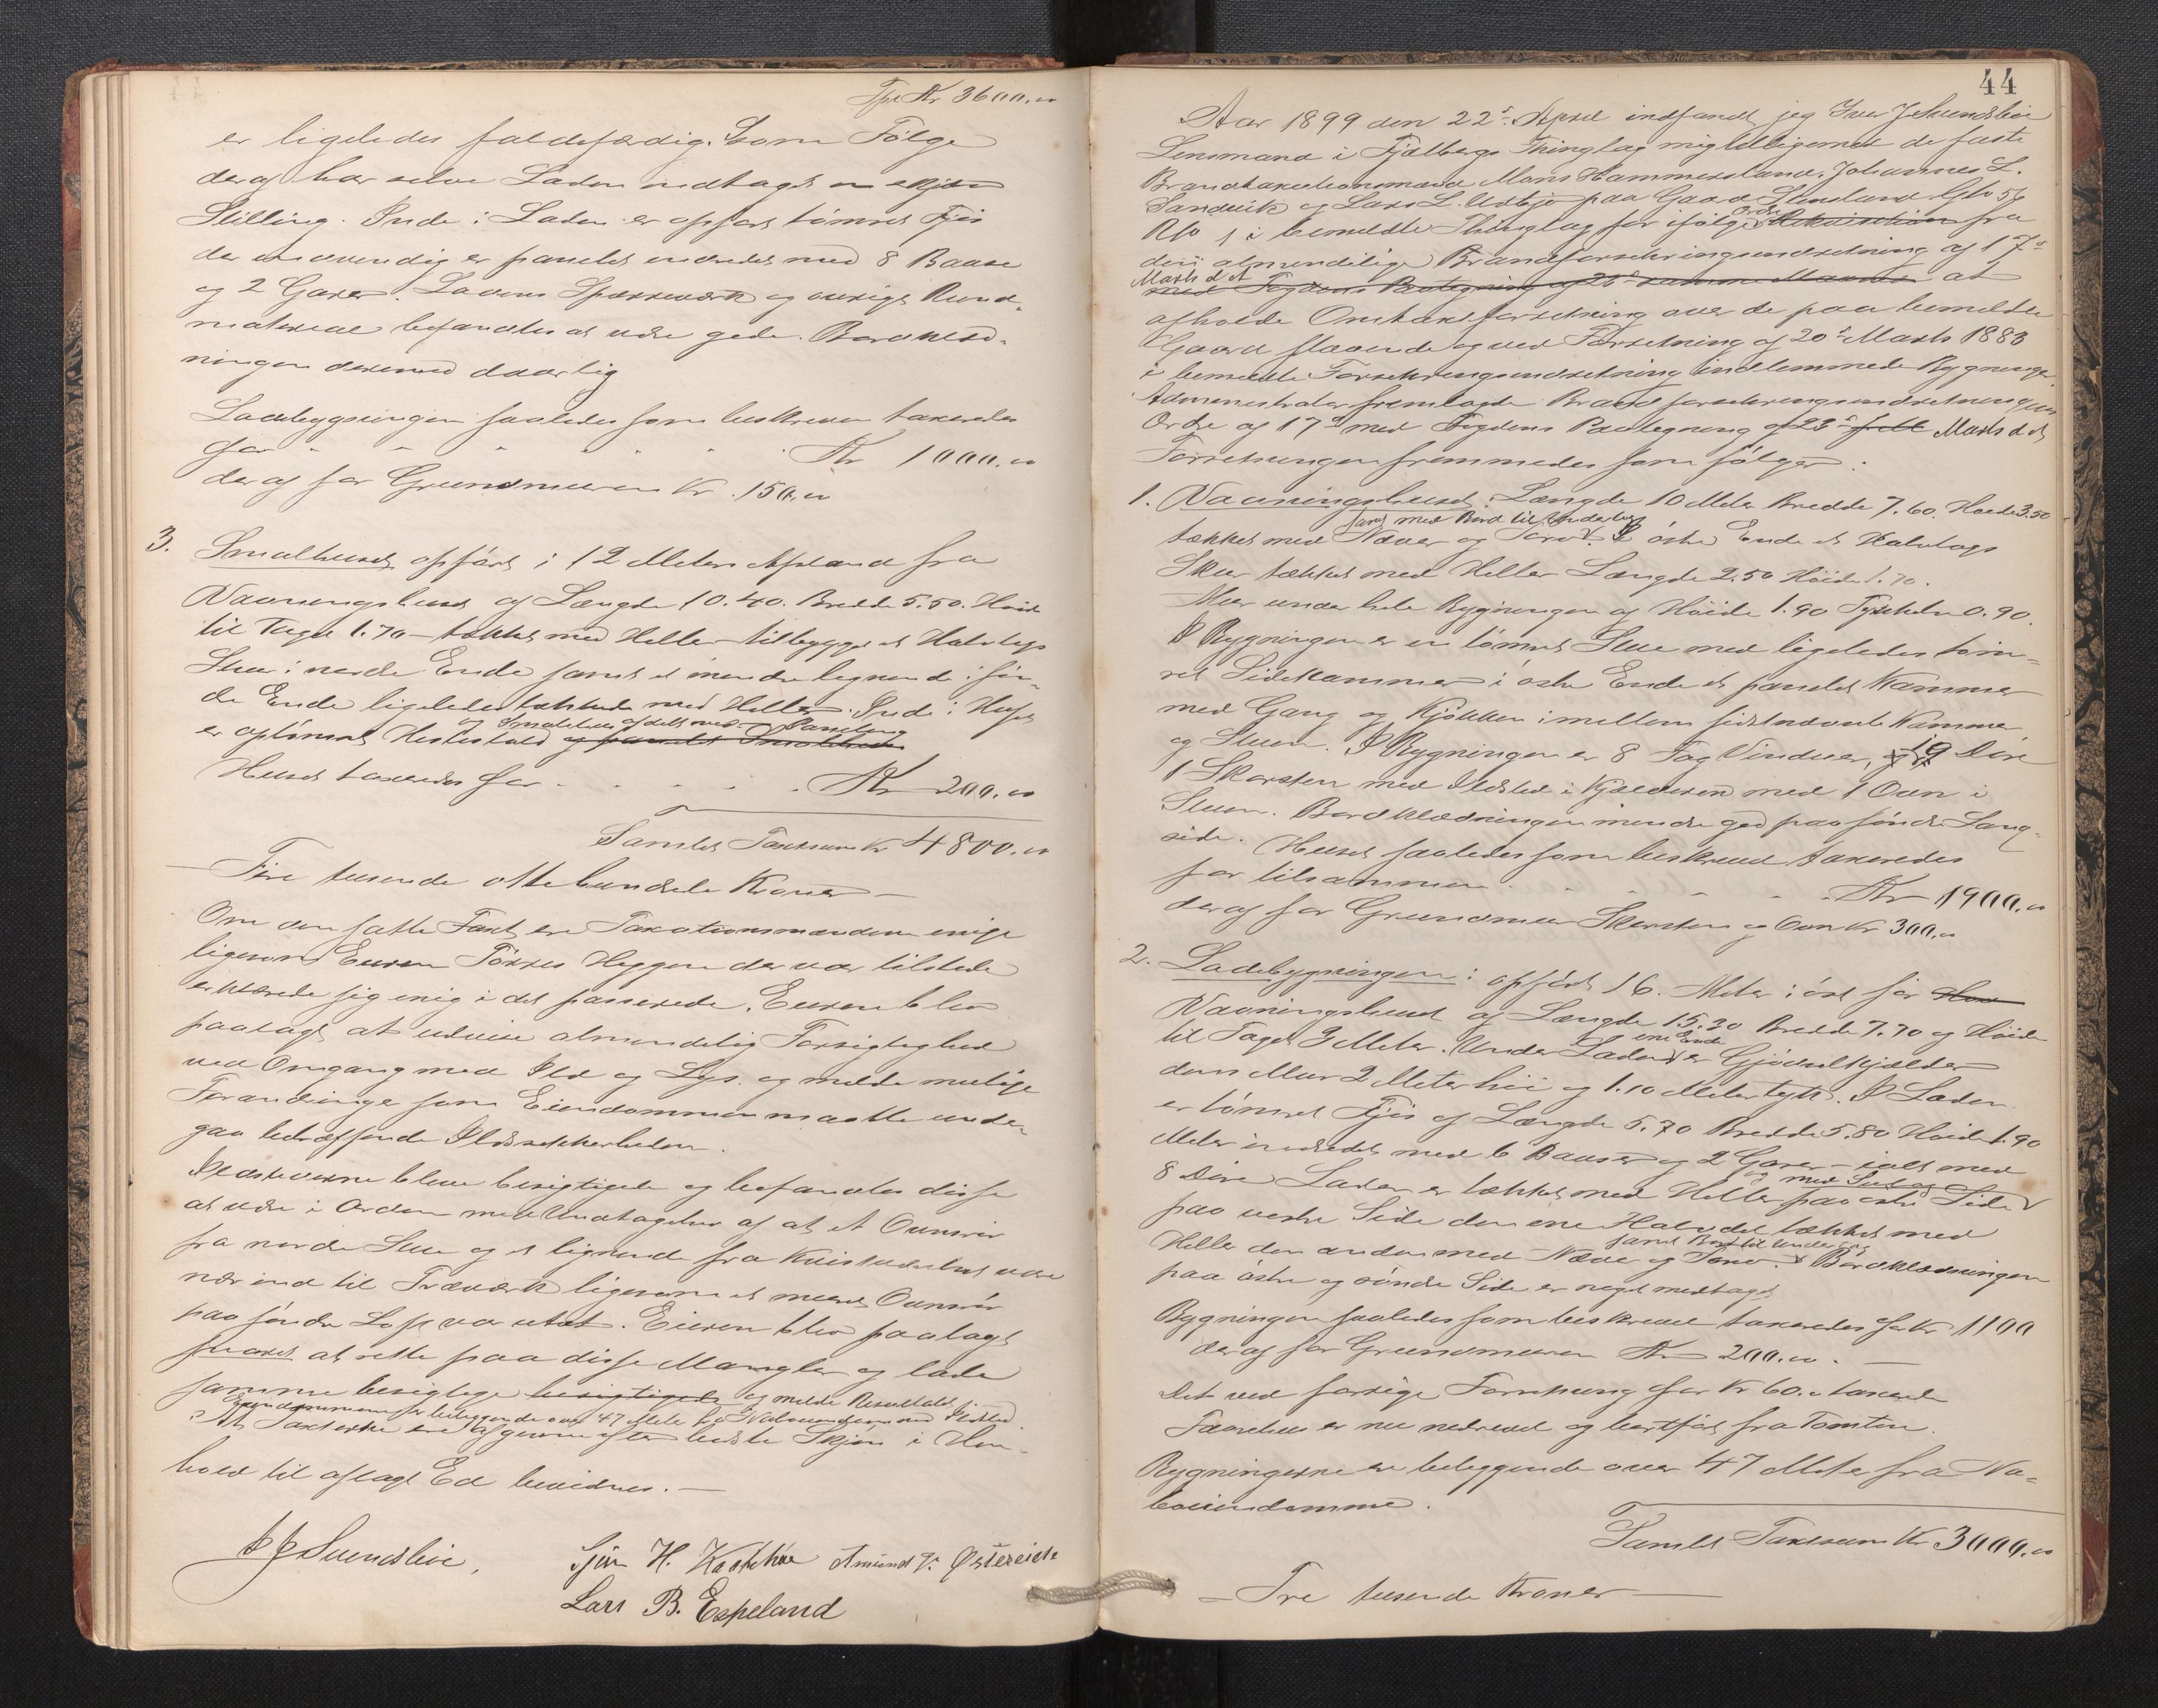 Tpt Kr 3600.00
er ligeledes faldefærdig. Som Følge
deraf har selve Laden indtaget en skjæv
Stilling. Inde i Laden er opført tømret Fjøs
der indvendig er panelet indredet med 8 Baase
og 2 Garer. Ladens Spærreværk og øvrige Rund-
materiale befandtes at være gode. Bordklæd-
ningen derimod daarlig
Ladebygningen saaledes som beskreven taxeredes
for Kr 1000.00
deraf for Grundmuren Kr. 150.00
3. Smalhuset opført i 12 Meters Afstand fra
Vaaningshuset af Længde 10.40. Bredde 5.50. Høide
til Taget 1.70 – tækket med Heller tilbygget et Halvtags
Skur i nordre Ende samt et mindre lignende i søn-
dre Ende ligeledes tækkede med Heller. Inde i Huset
og Smalehus afdelt med Paneling
er optømret Hestestald og panelet Smalehus
Huset taxeredes for Kr 200.00
Samlet Taxtsum Kr 4800.00
– Fire tusende ottehundrede Kroner –
Om den satte Taxt ere Taxationsmændene enige
ligesom Eieren Tørres Heggen der var tilstede
erklærede sig enig i det passerede. Eieren blev
paalagt at udvise almindelig Forsigtighed
ved Omgang med Ild og Lys. og melde mulige
Forandringer som Eiendommen maatte under-
gaa betræffende Ildssikkerheden.
Ildstederne bleve besigtigede og befandtes disse
at være i Orden med Undtagelse af at et Ovnsrør
fra nordre Stue og et lignende fra Kvistværelset var
nær ind til Træværk ligesom et muret Ovnsrør
paa søndre Loft var utæt. Eieren blev paalagt
snarest at rette paa disse Mangler og lade
samme besigtige besigtigede og melde Resultatet.
Eiendommen er beliggende over 47 Meter fra Naboeiendom med Ildsted.
At Taxterne ere afgivne efter bedste Skjøn i Hen-
hold til aflagt Ed bevidnes. –
I J Sundslien,
Sjur H. Amund V. Østereide
Lars B. Espeland
44
Aar 1899 den 22de April indfandt jeg Iver J Sundslien
Lensmand i Fjelbergs Thinglag mig tilligemed de faste
Brandtaxtationsmænd Mons Hammersland, Johannes L.
Sandvik og Lars L. Usbjø paa Gaard Gbr 56
Ordre
Bno 1 i bemeldte Thinglag for ifølge Rekvisition fra
den almindelige Brandforsikringsindretning af 17de
Marts d. A.
med Fogdens Paategning af 28de samme Maaned at
afholde Omtaxtforretning over de paa bemeldte
Gaard staaende og ved Forretning af 20de Marts 1883
i bemeldte Forsikringsindretning indlemmede Bygninger.
Administrator fremlagde Brandforsikringsindretningens
Ordre af 17de med Fogdens Paategning af 23de Marts d. A.
Forretningen fremmedes som følger:
1. Vaaningshuset: Længde 10 Meter Bredde 7.60. Høide 3.50
samt med Bord til Underlag
tækket med Næver og Torv. I østre Ende et Halvtags
Skur tækket med Heller Længde 2.50 Høide 1.70.
Mur under hele Bygningen af Høide 1.90 Tykkelse 0.90.
I Bygningen er en tømret Stue med ligeledes tøm-
ret Sidekammer i østre Ende et panelet Kammer
med Gang og Kjøkken imellem sidstnævnte Kammer
og Stuen. I Bygningen er 8 Fag Vinduer, 9 Døre
1 Skorsten med Ildsted i Kjælderen med 1 Ovn i
Stuen. Bordklædningen mindre god paa søndre Lang-
side. Huset saaledes som beskrevet taxeredes
for tilsammen Kr 1900.00
deraf for Grundmur Skorsten og Ovn Kr 300.00
2. Ladebygningen: opført 16. Meter i øst for
Vaaningshuset af Længde 15.30 Bredde 7.70 og Høide
ene Ende
til Taget 3 Meter. Under Ladens er Gjødselkjælder
dens Mur 2 Meter høi og 1.10 Meter tyk. I Laden
er tømret Fjøs af Længde 5.70 Bredde 5.80 Høide 1.90
Meter indredet med 6 Baaser og 2 Garer – ialt med
8 Døre Laden er tækket med Heller paa østre Side
paa vestre Side den ene Halvdel tækket med
samt Bord til Underlag
Heller den anden med Næver og Torv. Bordklædningen
paa østre og søndre Side er noget medtaget
Bygningen saaledes som beskrevet taxeredes for Kr 1100
deraf for Grundmuren Kr 200.00. –
Det ved forrige Forretning for Kr 60. taxerede
Faarehus er nu nedrevet og bortført fra Tomten.
Bygningerne ere beliggende over 47 Meter fra Na-
boeiendomme.
Samlet Taxtsum Kr 3000.00
– Tre tusende Kroner –